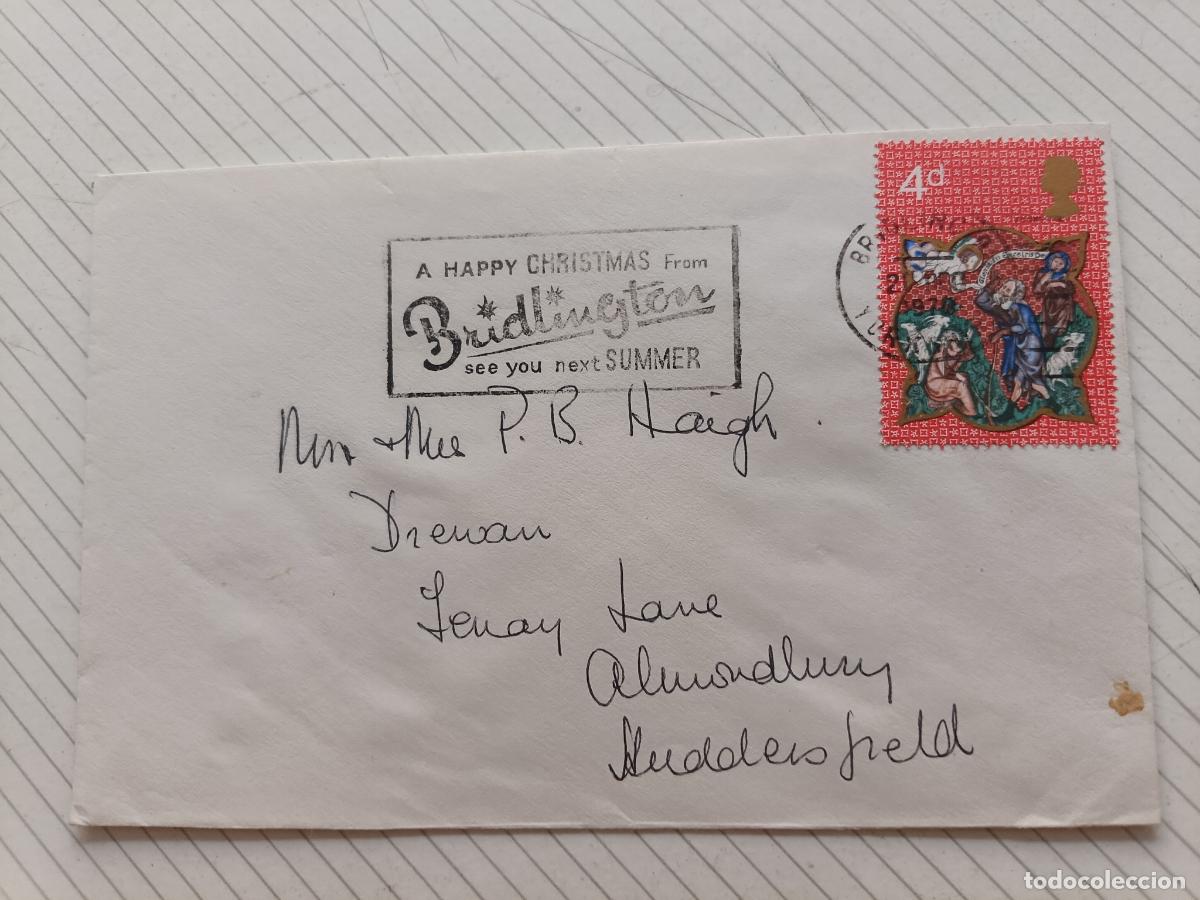 4d
A HAPPY CHRISTMAS From
Bridlington
see you next SUMMER
BR
1970
Mr & Mrs P. B. Haigh.
Drewan
Fenay Lane
Almondbury
Huddersfield
todocoleccion